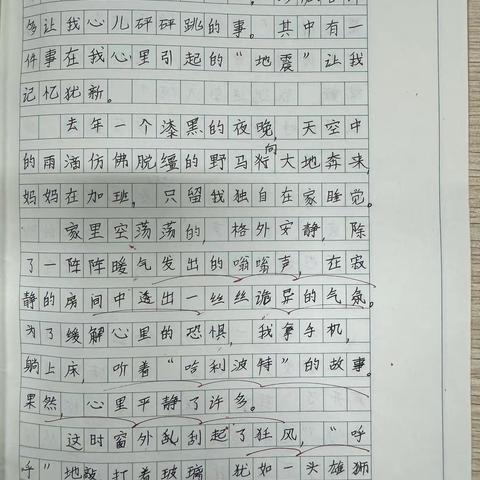 够让我心儿砰砰跳的事。其中有一
件事在我心里引起的“地震”让我
记忆犹新。
去年一个漆黑的夜晚，天空中
的雨滴仿佛脱缰的野马向大地奔来，
妈妈在加班，只留我独自在家睡觉。
家里空荡荡的，格外安静，除
了一阵阵暖气发出的嗡嗡声，在寂
静的房间中透出一丝丝诡异的气氛。
为了缓解心里的恐惧，我拿手机，
躺上床，听着“哈利波特”的故事。
果然，心里平静了许多。
这时窗外乱刮起了狂风，“呼
呼”地敲打着玻璃，犹如一头雄狮